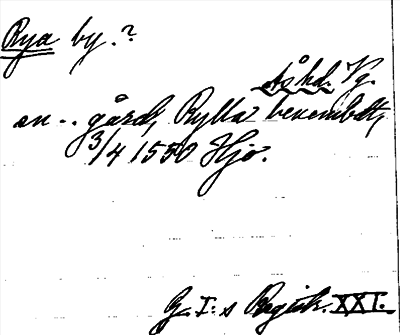 Rya by.?
Ås hd. Vg.
en .. gård, Rylla benembdt,
3/4 1550 Hjo.
G. I:s Registr. XXI.